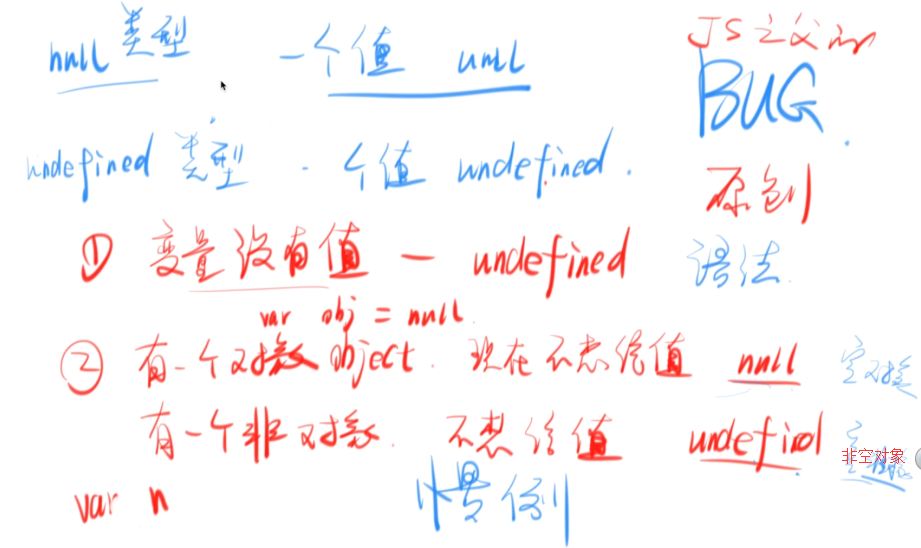 null 类型 一个值 unll
JS之父的
BUG
undefined 类型 一个值 undefined.
原创
① 变量没有值 — undefined
语法
var obj = null
② 有一个对象 object. 现在不想给值 null 空对象
有一个非对象. 不想给值 undefind
非空对象
var n
惯例